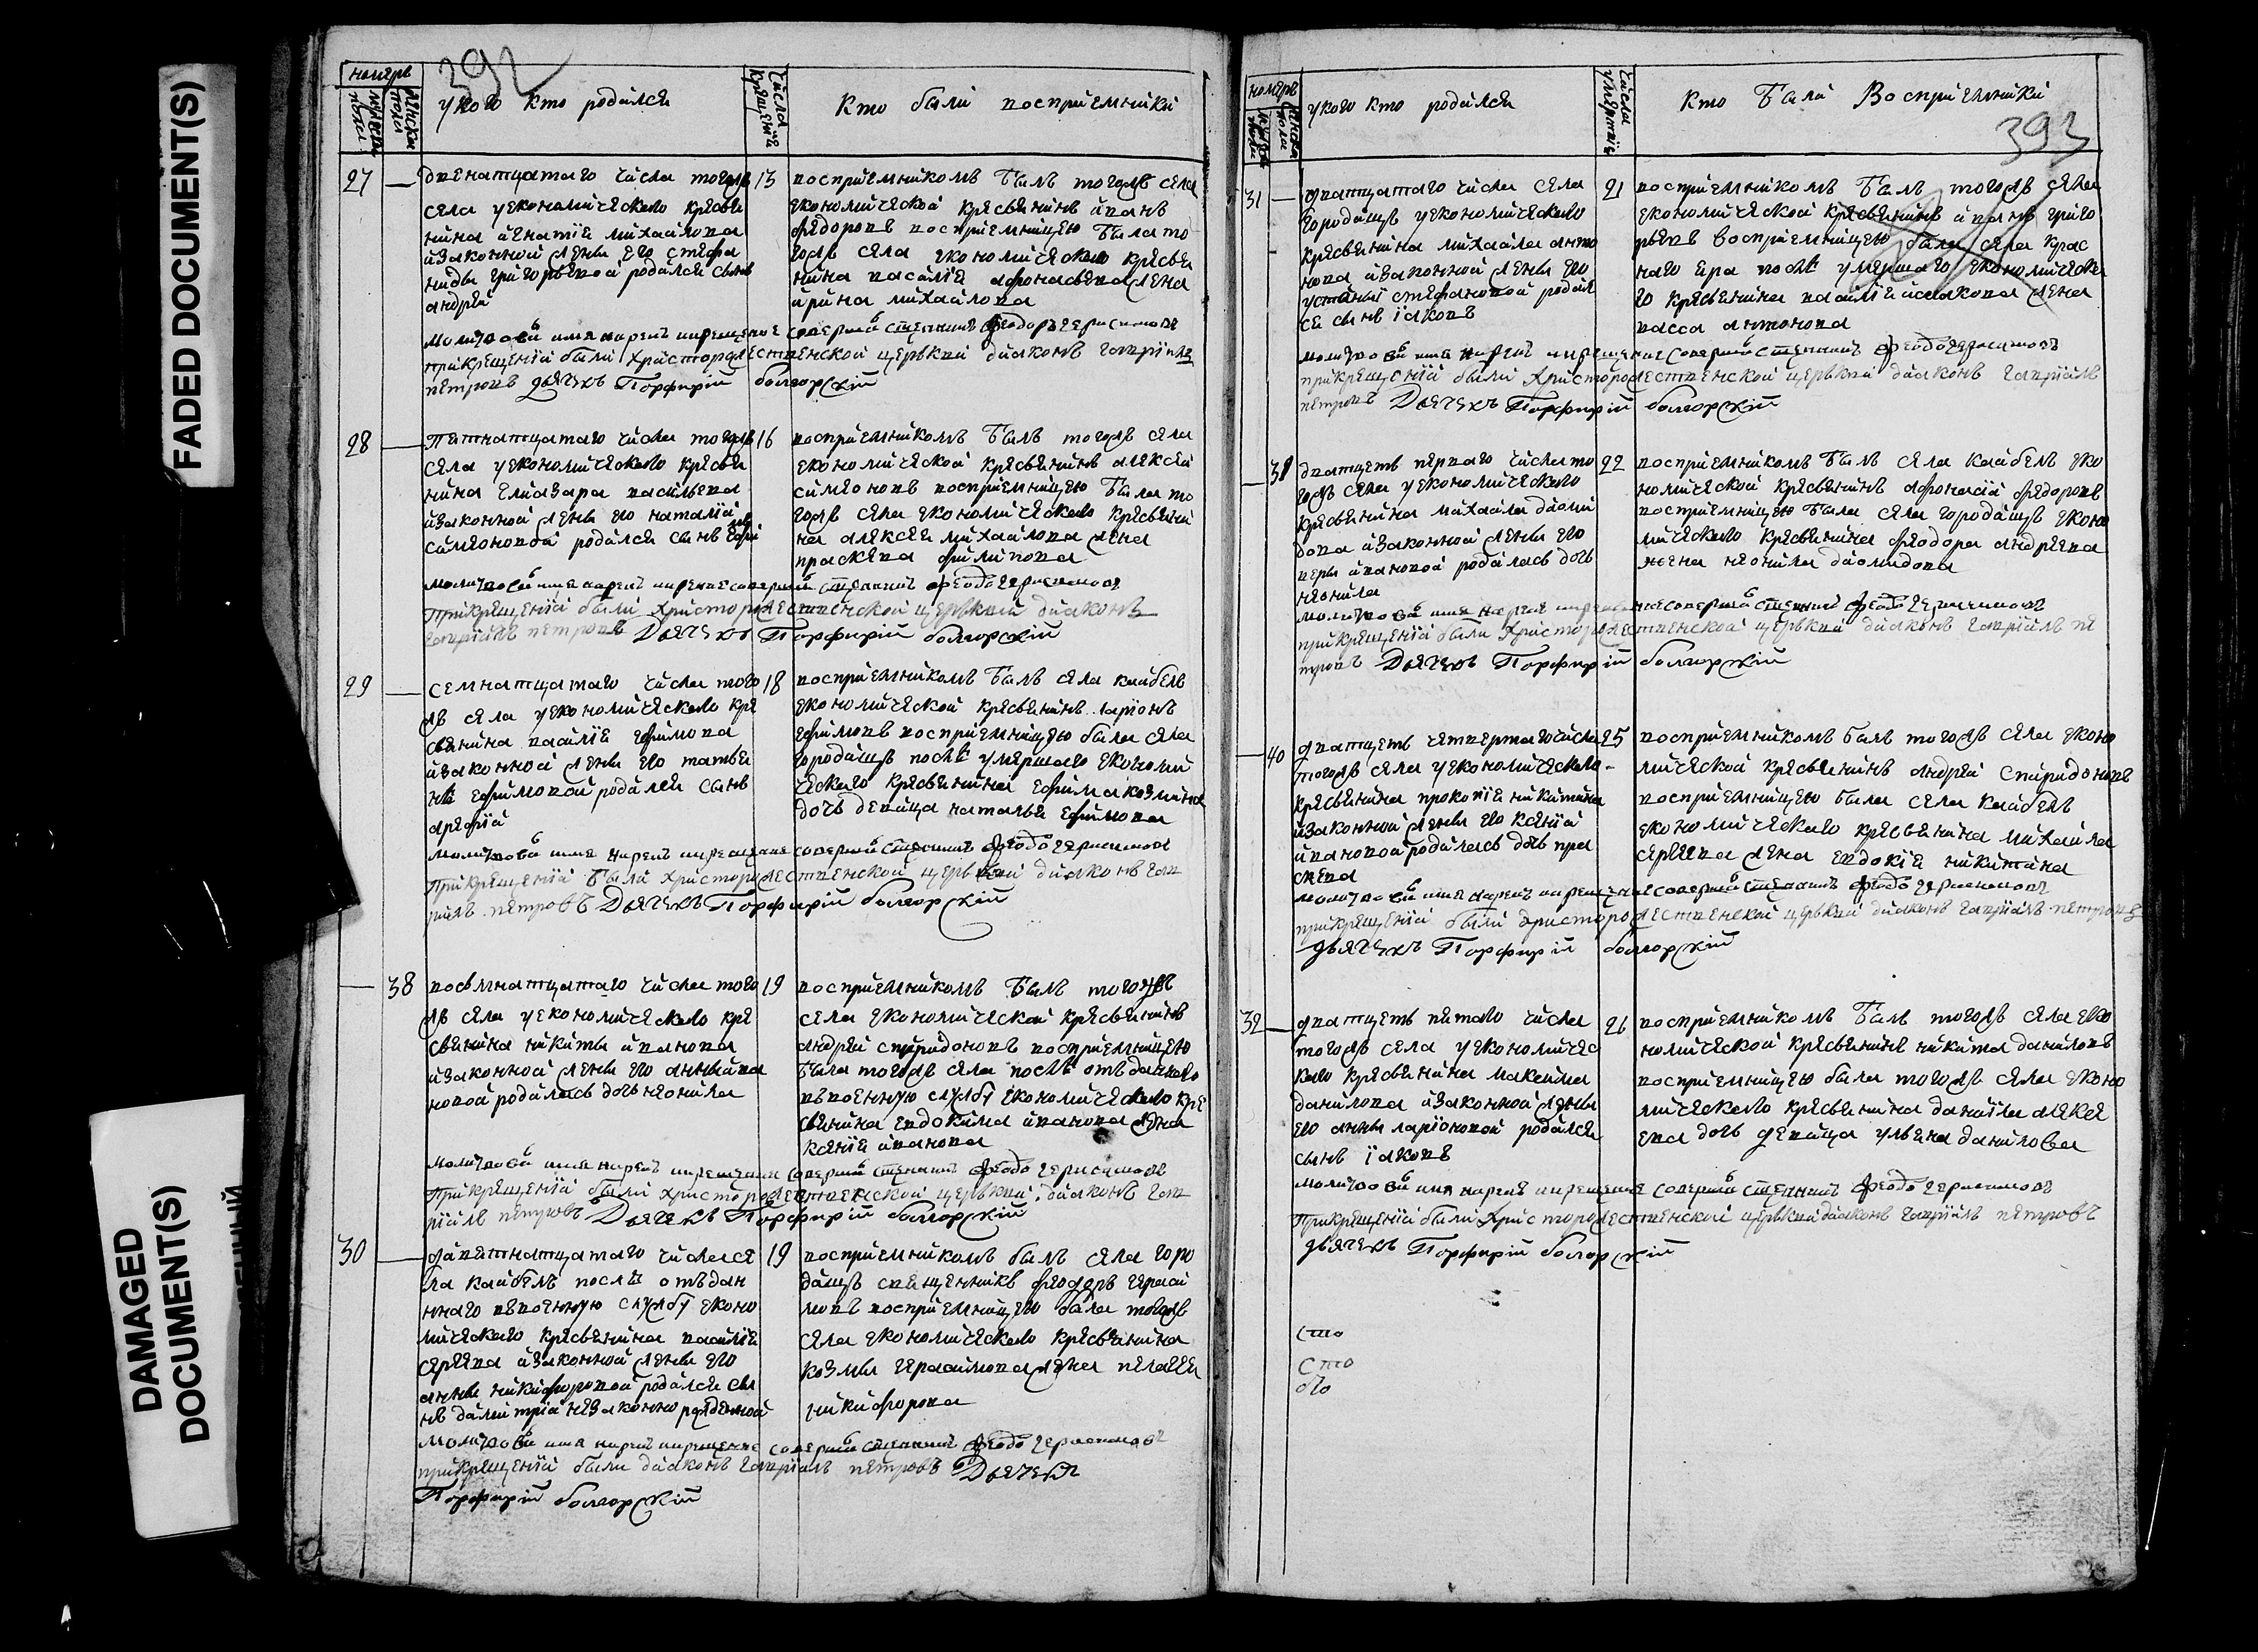 FADED DOCUMENT(S)
DAMAGED
DOCUMENT(S)
392
номеръ
мужеска пола
женска пола
у кого кто родился
числа крещения
кто были восприемники
27
двенатцатаго числа тогожъ
села у економическаго кресья
нина игнатия михаилова
и законной жены его стефа
ниды григорьевой родился сынъ
андрей
13
восприемникомъ былъ тогожъ села
економической кресьянинъ иванъ
федоровъ восприемницею была то
гожъ села економическаго кресья
нина василия афонасьева жена
ирина михаилова
молитвовалъ имя нарекъ и крещение совершилъ священникъ феодоръ герасимовъ
при крещении были христорождественской церькви дияконъ гаврийлъ
петровъ дьячекъ Порфирий болгорский
28
Пятнатцатаго числа тогожъ
села у економическаго кресья
нина елиазара васильева
и законной жены его наталии
симеоновой родился сынъ ефи
мъ
16
восприемникомъ былъ тогожъ села
економической кресьянинъ алексей
симеоновъ восприемницею была то
гожъ села економическаго кресьяни
на алексея михаилова жена
праскева филипова
молитвовалъ имя нарекъ и крещение совершилъ священникъ феодоръ герасимовъ
При крещении были христорождественской церькви дияконъ
гаврийлъ петровъ Дьячекъ Порфирий болгорский
29
семнатцатаго числа того
жъ села у економическаго кре
сьянина василия ефимова
и законной жены его татья
ны ефимовой родился сынъ
арефий
18
восприемникомъ былъ села кайбелъ
економической кресьянинъ ларионъ
ефимовъ восприемницею была села
городищъ послѣ умершаго економи
ческаго кресьянина ефима козмина
дочь девица наталья ефимова
молитвовалъ имя нарекъ и крещение совершилъ священникъ феодоръ герасимовъ
При крещении были христорождественской церькви дияконъ гав
рийлъ петровъ Дьячекъ Порфирий болгорский
38
восьмнатцатаго числа того
жъ села у економическаго кре
сьянина никиты иванова
и законной жены его анны ива
новой родилась дочь неонила
19
восприемникомъ былъ тогожъ
села економической кресьянинъ
андрей спиридоновъ восприемницею
была тогожъ села послѣ отъданнаго
въ военную службу економическаго кре
сьянина евдокима иванова жена
ксения иванова
молитвовалъ имя нарекъ и крещение совершилъ священникъ феодоръ герасимовъ
При крещении были христорождественской церькви дияконъ гав
рийлъ петровъ Дьячекъ Порфирий болгорский
30
девятнатцатаго числа се
ла кайбелъ послѣ отъдан
ннаго въ военную службу еконо
мическаго кресьянина василия
сергеева и законной жены его
анны никифоровой родился сы
нъ димитрий незаконно рожденной
19
восприемникомъ былъ села горо
дищъ священникъ феодоръ гераси
мовъ восприемницею была тогожъ
села економическаго кресьянина
козмы герасимова жена пелагея
никифорова
молитвовалъ имя нарекъ и крещение совершилъ священникъ феодоръ герасимовъ
при крещении были дияконъ гаврийлъ петровъ Дьячекъ
Порфирий болгорский
номеръ
у кого кто родился
кто были Восприемники
393
31
дватцатаго числа села
городищъ у економическаго
кресьянина михаила анто
нова и законной жены его
устиньи стефановой родил
ся сынъ иаковъ
21
восприемникомъ былъ тогожъ села
економической кресьянинъ иванъ григо
рьевъ восприемницею была села крас
наго яра послѣ умершаго економическа
го кресьянина василия исакова жена
васса антонова
молитвовалъ имя нарекъ и крещение совершилъ священникъ феодоръ герасимовъ
при крещении были христорождественской церькви дияконъ гаврийлъ
петровъ Дьячекъ Порфирий болгорский
39
дватцеть перваго числа то
гожъ села у економическаго
кресьянина михаила диоми
дова и законной жены его
веры ивановой родилась дочь
неонила
22
восприемникомъ былъ села кайбелъ еко
номической кресьянинъ афонасий федоровъ
восприемницею была села городищъ еконо
мическаго кресьянина феодора андреева
жена неонила диомидова
молитвовалъ имя нарекъ и крещение совершилъ священникъ феодоръ герасимовъ
при крещении были христорождественской церькви дияконъ гаврийлъ пе
тровъ Дьячекъ Порфирий болгорский
40
дватцеть четвертаго числа
тогожъ села у економическаго
кресьянина прокопия никитина
и законной жены его ксении
ивановой родилась дочь пра
скева
25
восприемникомъ былъ тогожъ села еконо
мической кресьянинъ андрей спиридоновъ
восприемницею была села кайбелъ
економическаго кресьянина михаила
сергеева жена евдокия никитина
молитвовалъ имя нарекъ и крещение совершилъ священникъ феодоръ герасимовъ
при крещении были христорождественской церькви дияконъ гаврийлъ петровъ
дьячекъ Порфирий болгорский
32
дватцеть пятаго числа
тогожъ села у економичес
каго кресьянина максима
данилова и законной жены
его анны ларионовой родился
сынъ иаковъ
26
восприемникомъ былъ тогожъ села еко
номической кресьянинъ никита даниловъ
восприемницею была тогожъ села еконо
мическаго кресьянина даниила алекс
еева дочь девица ульяна данилова
молитвовалъ имя нарекъ и крещение совершилъ священникъ феодоръ герасимовъ
При крещении были христорождественской церькви дияконъ гаврийлъ петровъ
дьячекъ Порфирий болгорский
сто
сто
ого